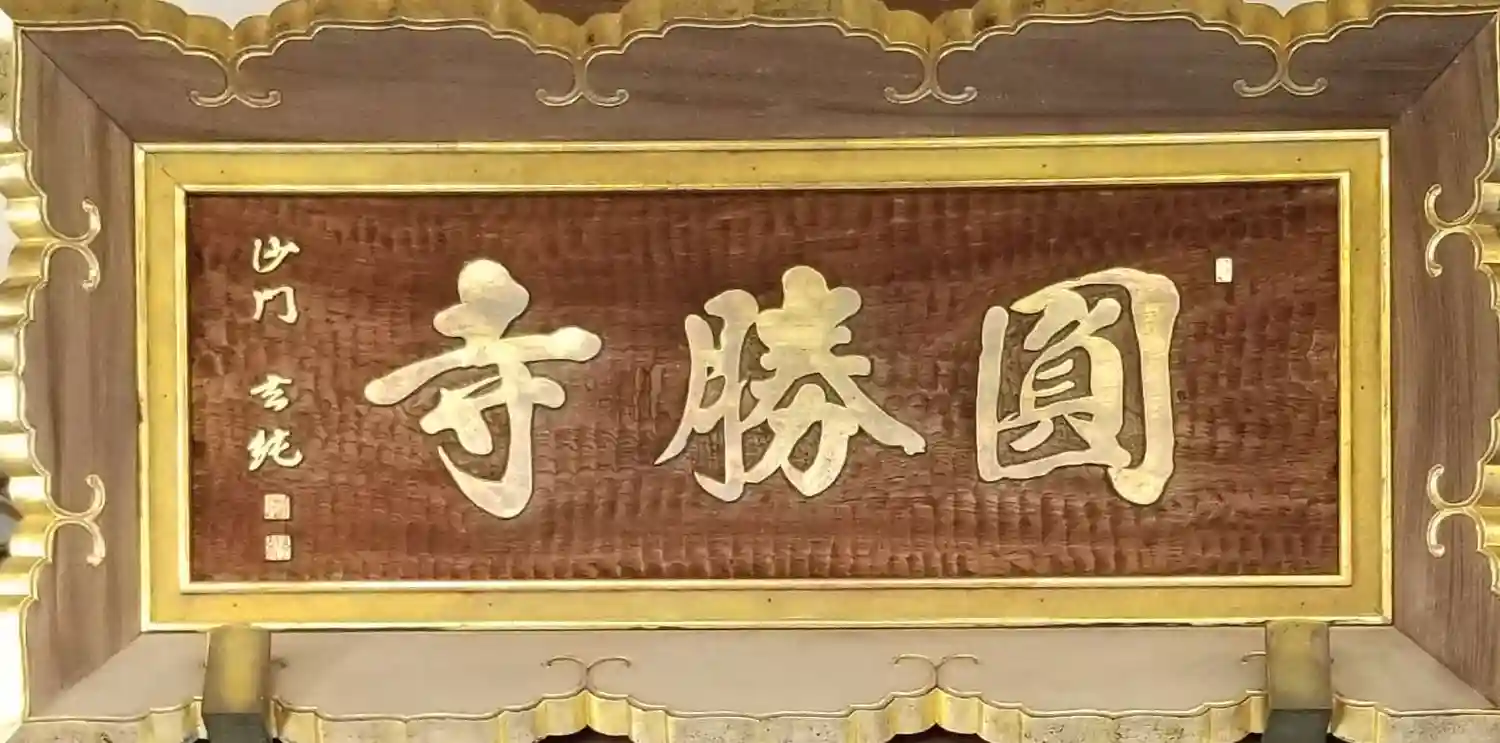 圓勝寺
山門 玄純